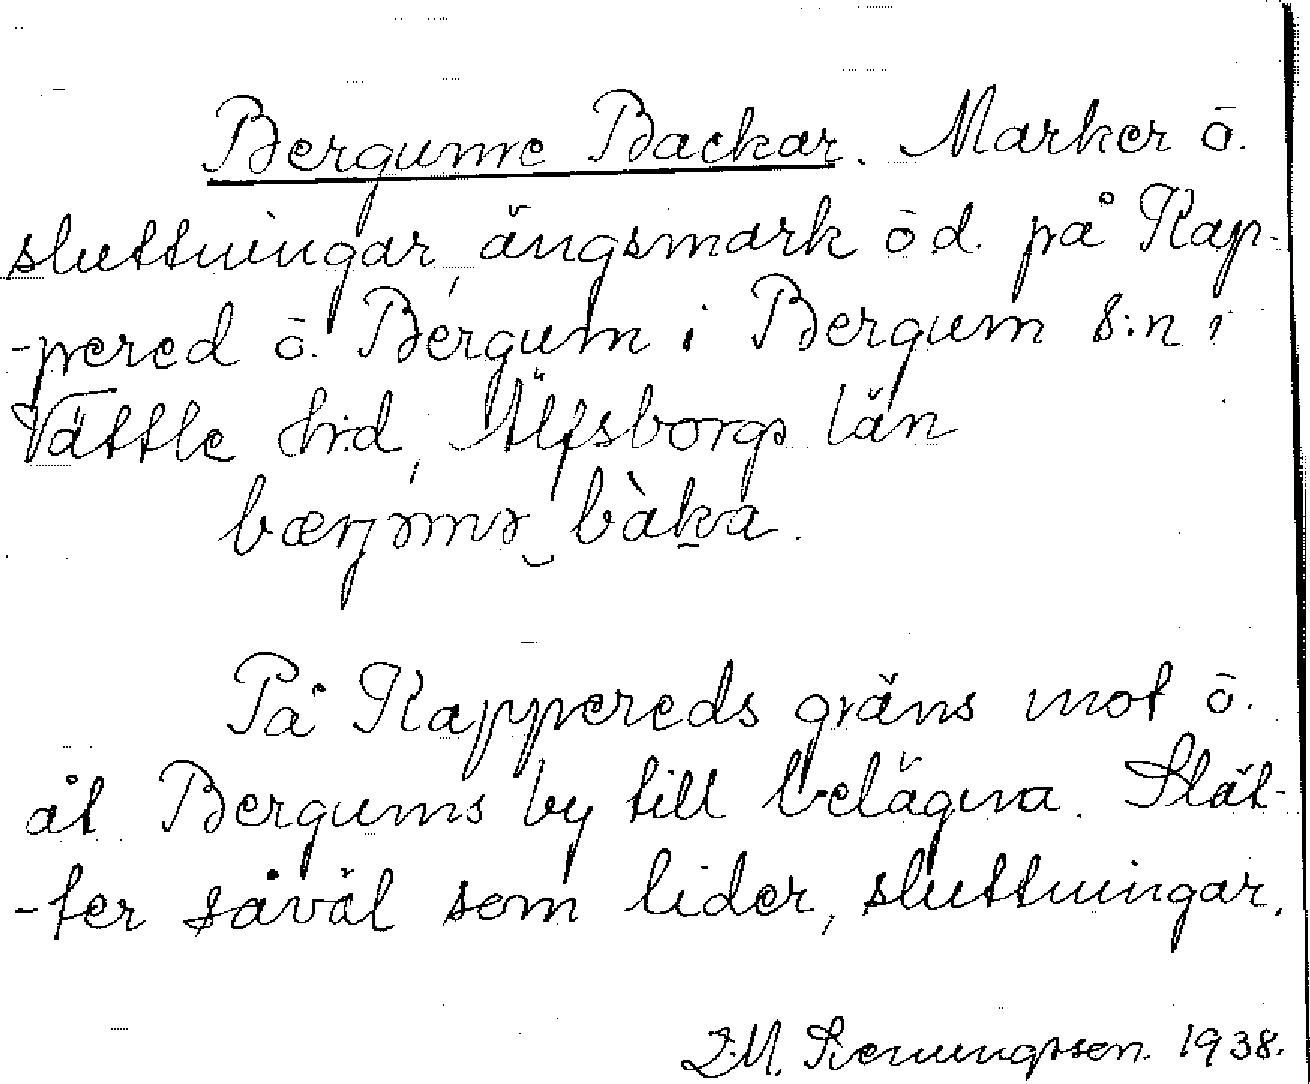 Bergume Backar. Marker ō.
sluttningar, ängsmark ōd. på Kap-
-pered ō. Bergum i Bergum s:n i
Vättle h:d, Älfsborgs län
bærjəmə bàka.
På Kappereds gräns mot ō.
åt Bergums by till belägna. Slät-
-ter såväl som lider, sluttningar.
1938.